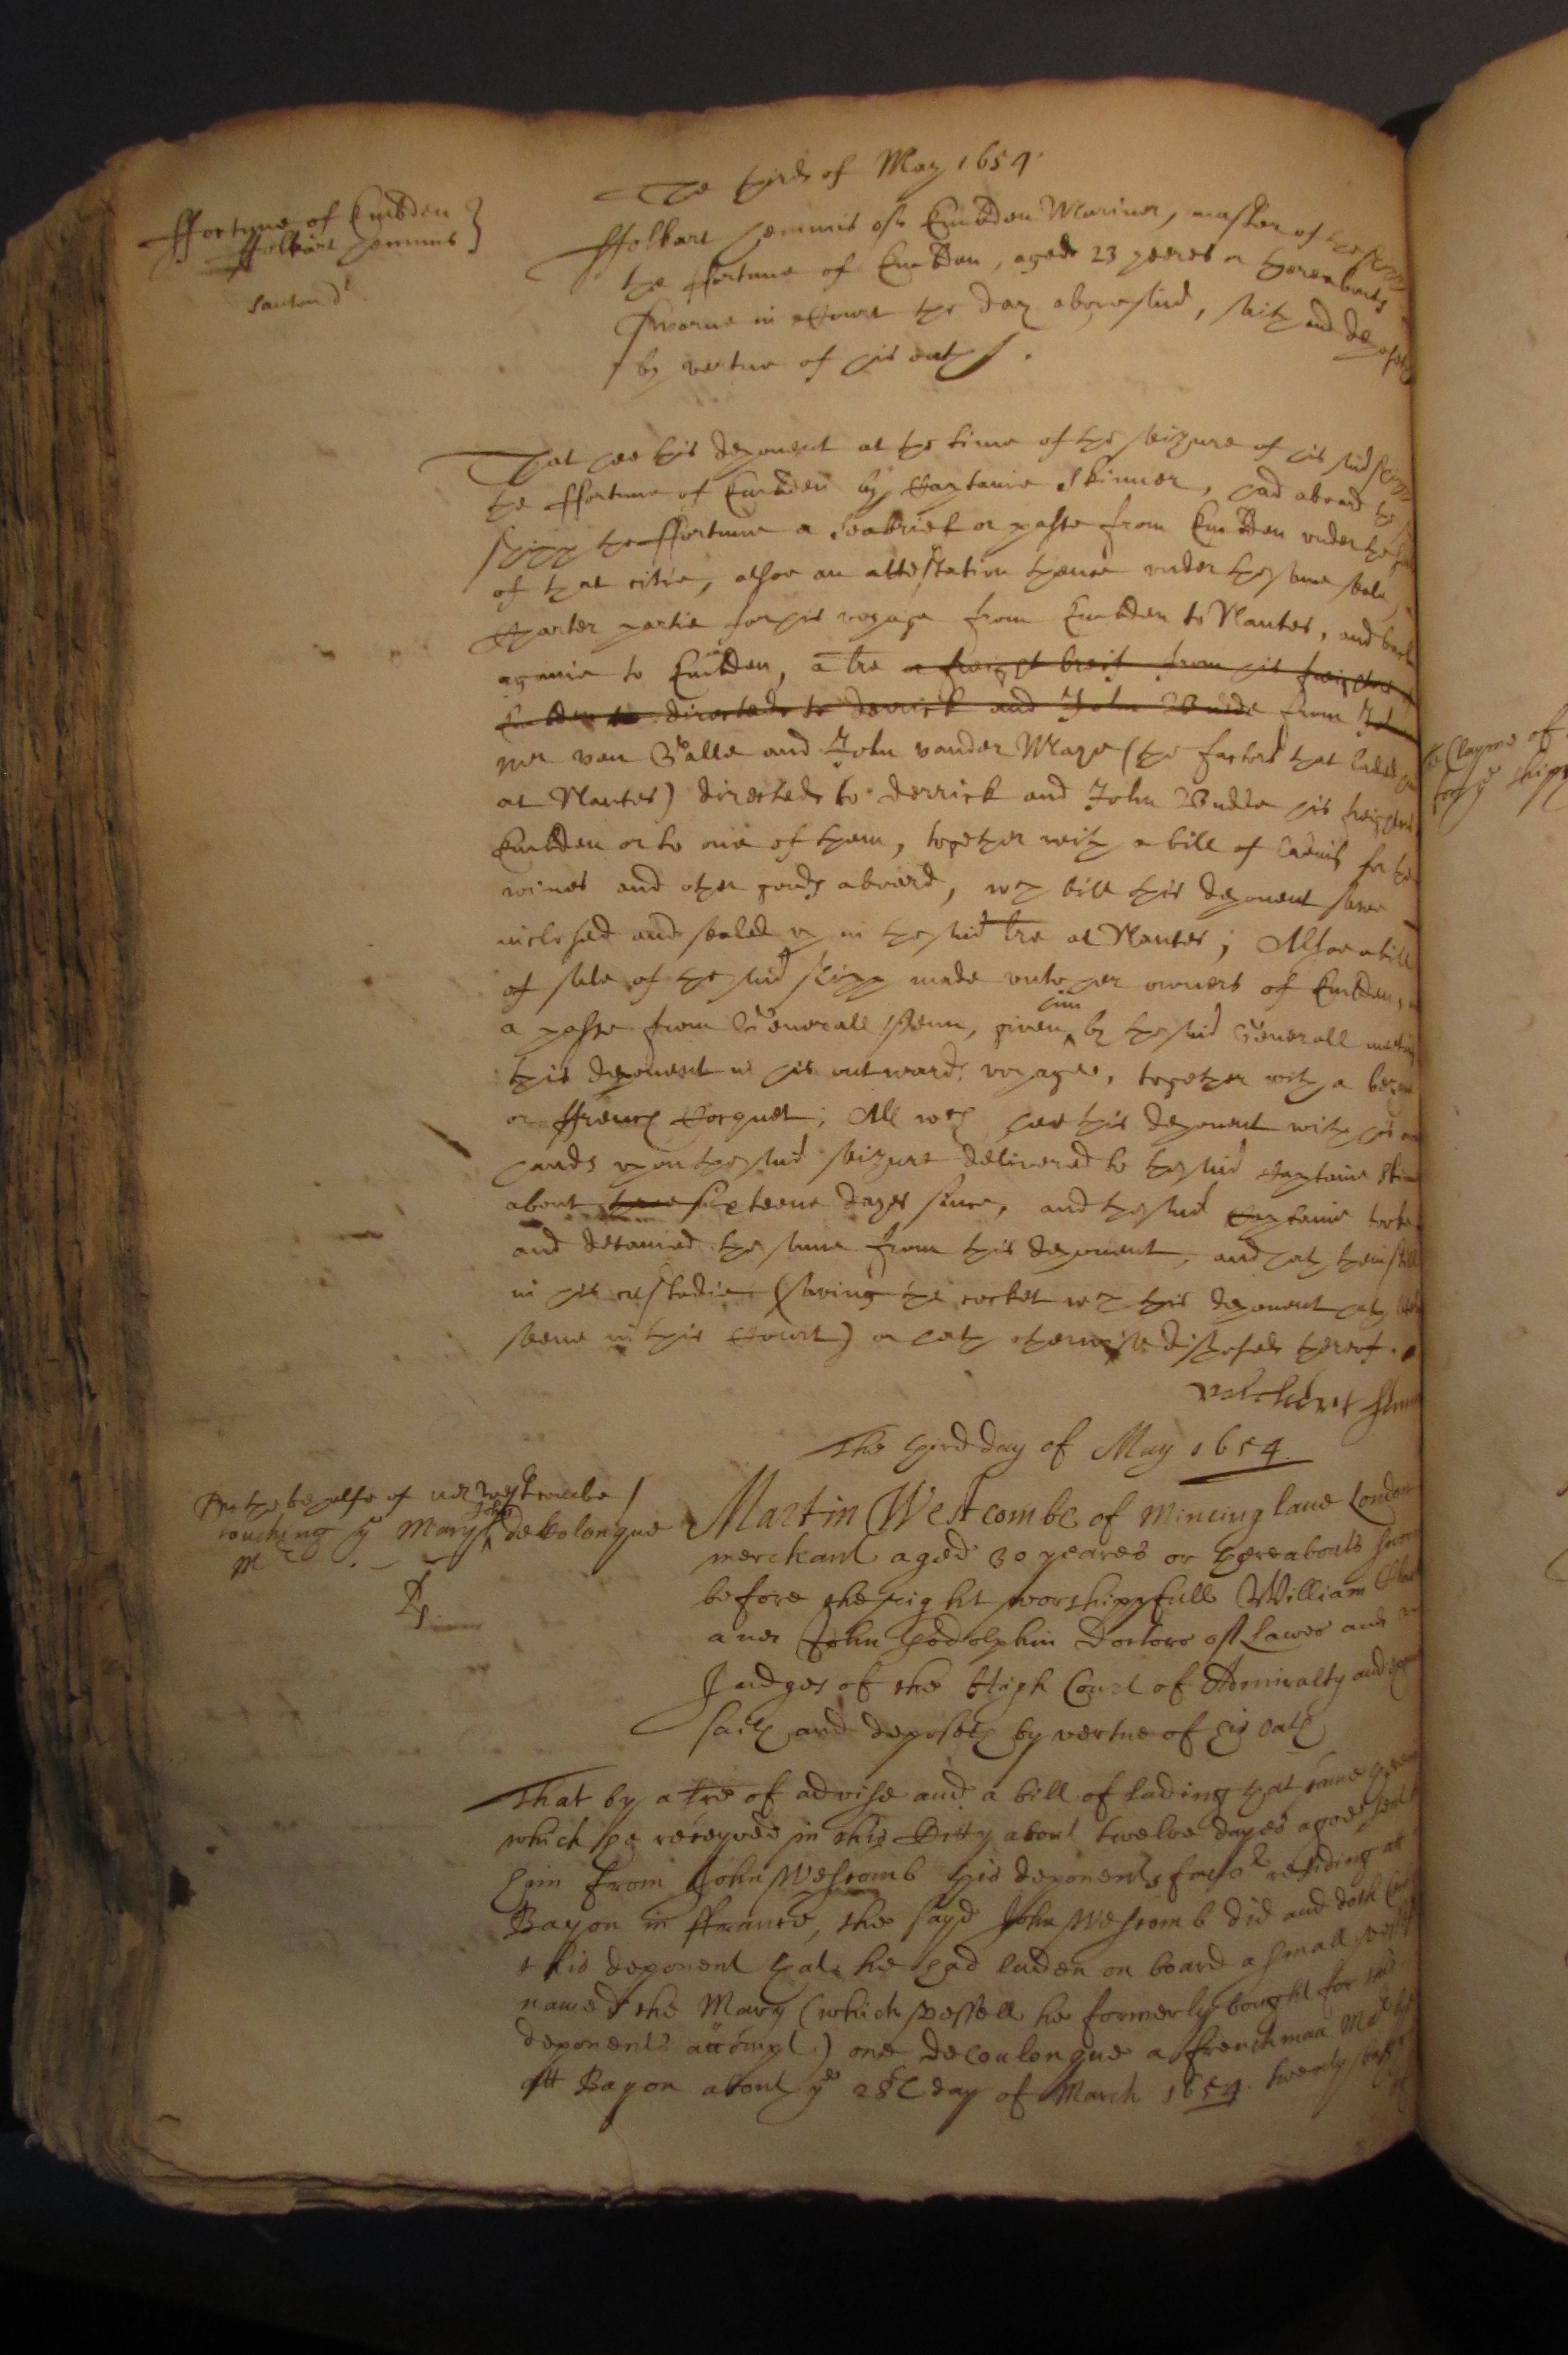 The third of May 1654.
ffortune of Embden
ffolkart Hemmis
Suckley dt
ffolkart Hemmis of Embden Mariner, master of the shipp
the ffortune of Embden, aged 23 yeeres or thereabouts
sworne in Court the day abovesaid, saith and deposeth
by vertue of his oath.
That hee this deponent at the time of the seizure of his said shipp
the ffortune of Embden by Captaine Skinner, had aboard the
shipp the ffortune a Seabrief or passe from Embden under the seale
of that citie, alsoe an attestation thence under the same seale, a
charter partie for his voyage from Embden to Nantes, and back
againe to Embden, a lre a freight brief from his freighters
Embden to directed to Derrick and John Budde from
van Halle and John vander Mage (the factors that laded
at Nantes) directed to Derrick and John Budde his freighters
Embden or to one of them, together with a bill of lading for the
wines and other goods aboard, wch bill this deponent sawe
inclosed and sealed up in the said lre at Nantes; Alsoe a bill
of sale of the said shipp made unto her owners of Embden,
a passe from Generall Penn, given him by the said Generall meeting
this deponent in his outward voyage, together with a
or ffrench Cocquet; All wch hee this deponent with his owne
hands upon the said seizure delivered to the said Captaine Skinner
about sixteene dayes since, and the said Captaine tooke
and detained the same from this deponent, and hath them still
in his custodie (saving the cocket wch this deponent hath
seene in this Court) or hath otherwise disposed thereof.
The third day of May 1654.
On the behalfe of Westcombe
touching ye Mary John de Kolongue
Mr
Martin Westcombe of Mincing lane London
merchant aged 30 yeares or thereabouts sworne
before the right worshippfull William Clerk
and John Godolphin Doctors of Lawes and
Judges of the High Court of Admiralty
saith and deposeth by vertue of his oath
That by a lre of advise and a bill of lading that came
which he receyved in this Citty about twelve dayes agoe sent
him from John Wescomb this deponents factor residing att
Bayon in ffrance, the sayd John Wescomb did and doth
this deponent that he had laden on board a small vessell
named the Mary (which vessell he formerly bought for this
deponents accompt) one Decoulongue a frenchman Mr
att Bayon about ye 28th day of March 1654. twenty
Clayme of
ye shipp